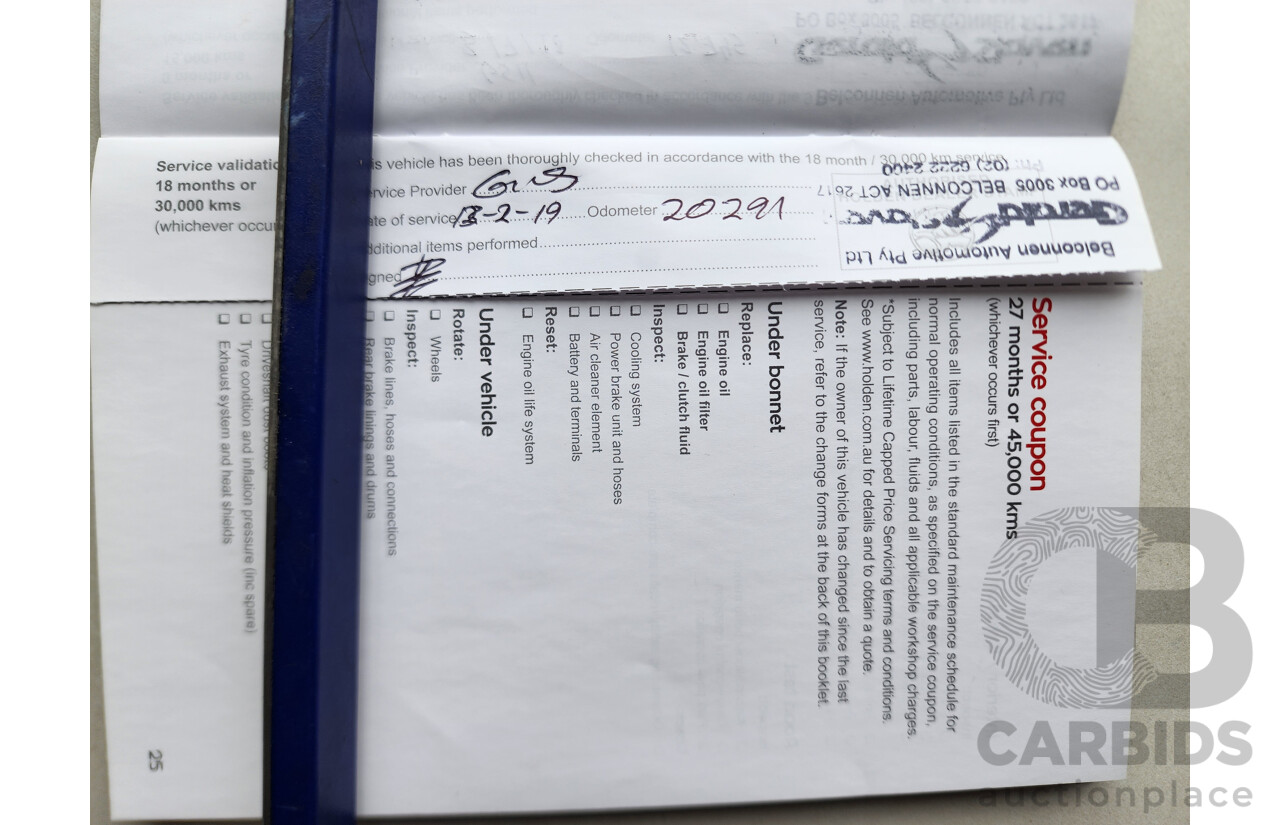 PO Box 3005 BELCONNEN ACT 2617
Belconnen Automotive Pty Ltd
Service validatio
18 months or
30,000 kms
(whichever occur
is vehicle has been thoroughly checked in accordance with the 18 month / 30,000 km service
rvice Provider
ate of service 13-2-19 Odometer 20291
dditional items performed
gned
Belconnen Automotive Pty Ltd
Gerald Slaven
PO Box 3005 BELCONNEN ACT 2617
Ph: (02) 6222 2400
Service coupon
27 months or 45,000 kms
(whichever occurs first)
Includes all items listed in the standard maintenance schedule for
normal operating conditions, as specified on the service coupon,
including parts, labour, fluids and all applicable workshop charges.
*Subject to Lifetime Capped Price Servicing terms and conditions.
See www.holden.com.au for details and to obtain a quote.
Note: If the owner of this vehicle has changed since the last
service, refer to the change forms at the back of this booklet.
Under bonnet
Replace:
Engine oil
Engine oil filter
Brake / clutch fluid
Inspect:
Cooling system
Power brake unit and hoses
Air cleaner element
Battery and terminals
Reset:
Engine oil life system
Under vehicle
Rotate:
Wheels
Inspect:
Brake lines, hoses and connections
Rear brake linings and drums
Driveshaft dust boots
Tyre condition and inflation pressure (inc spare)
Exhaust system and heat shields
25
CB
CARBIDS
auctionplace